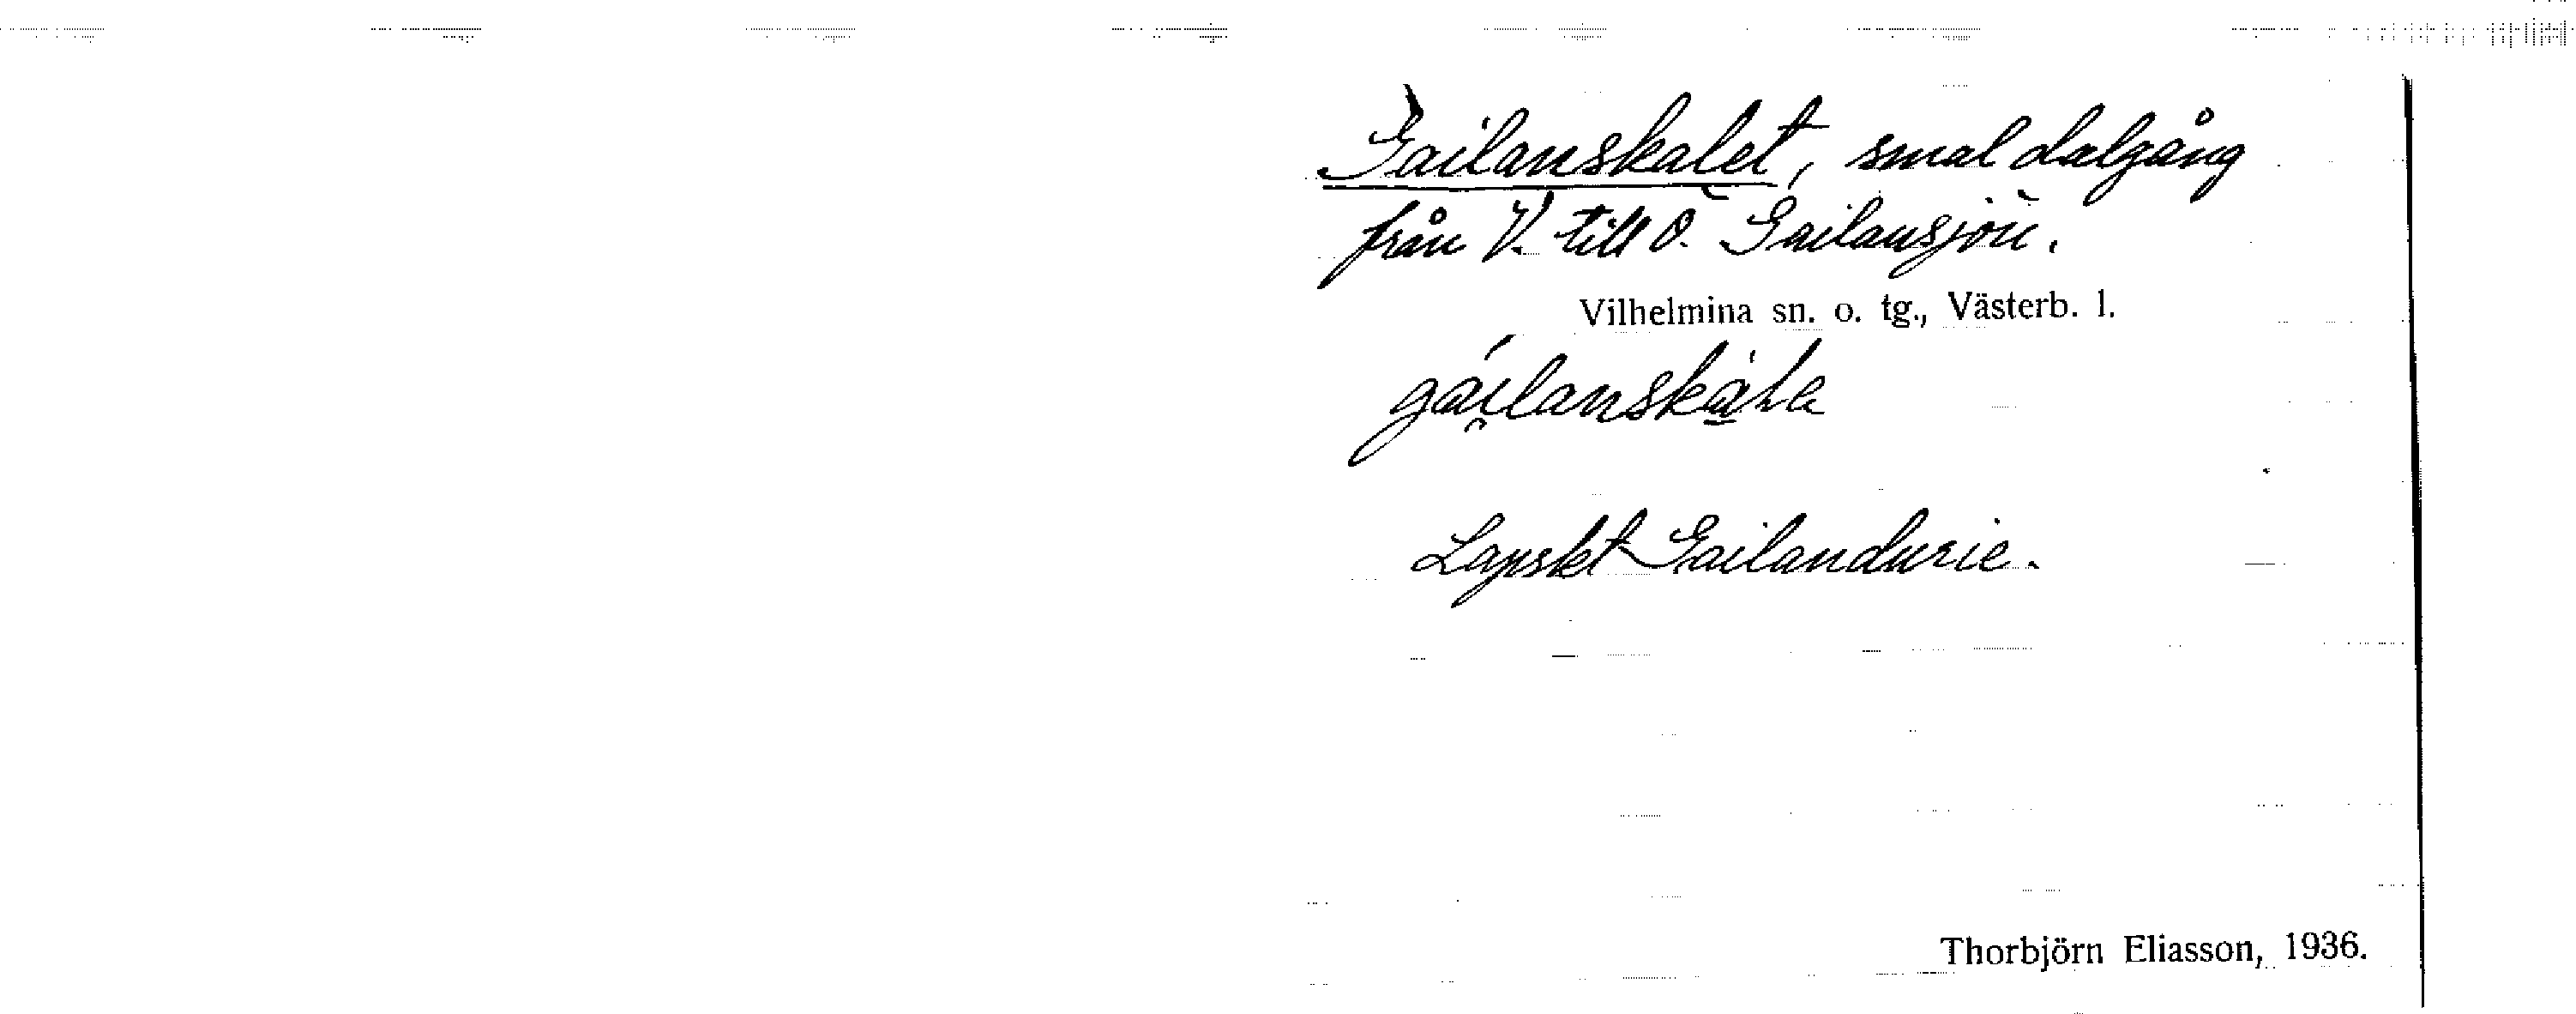 Gailanskalet, smal dalgång
från V. till Ö. Gailansjön.
Vilhelmina sn. o. tg., Västerb. l.
Lapskt Gailandurie.
Thorbjörn Eliasson, 1936.